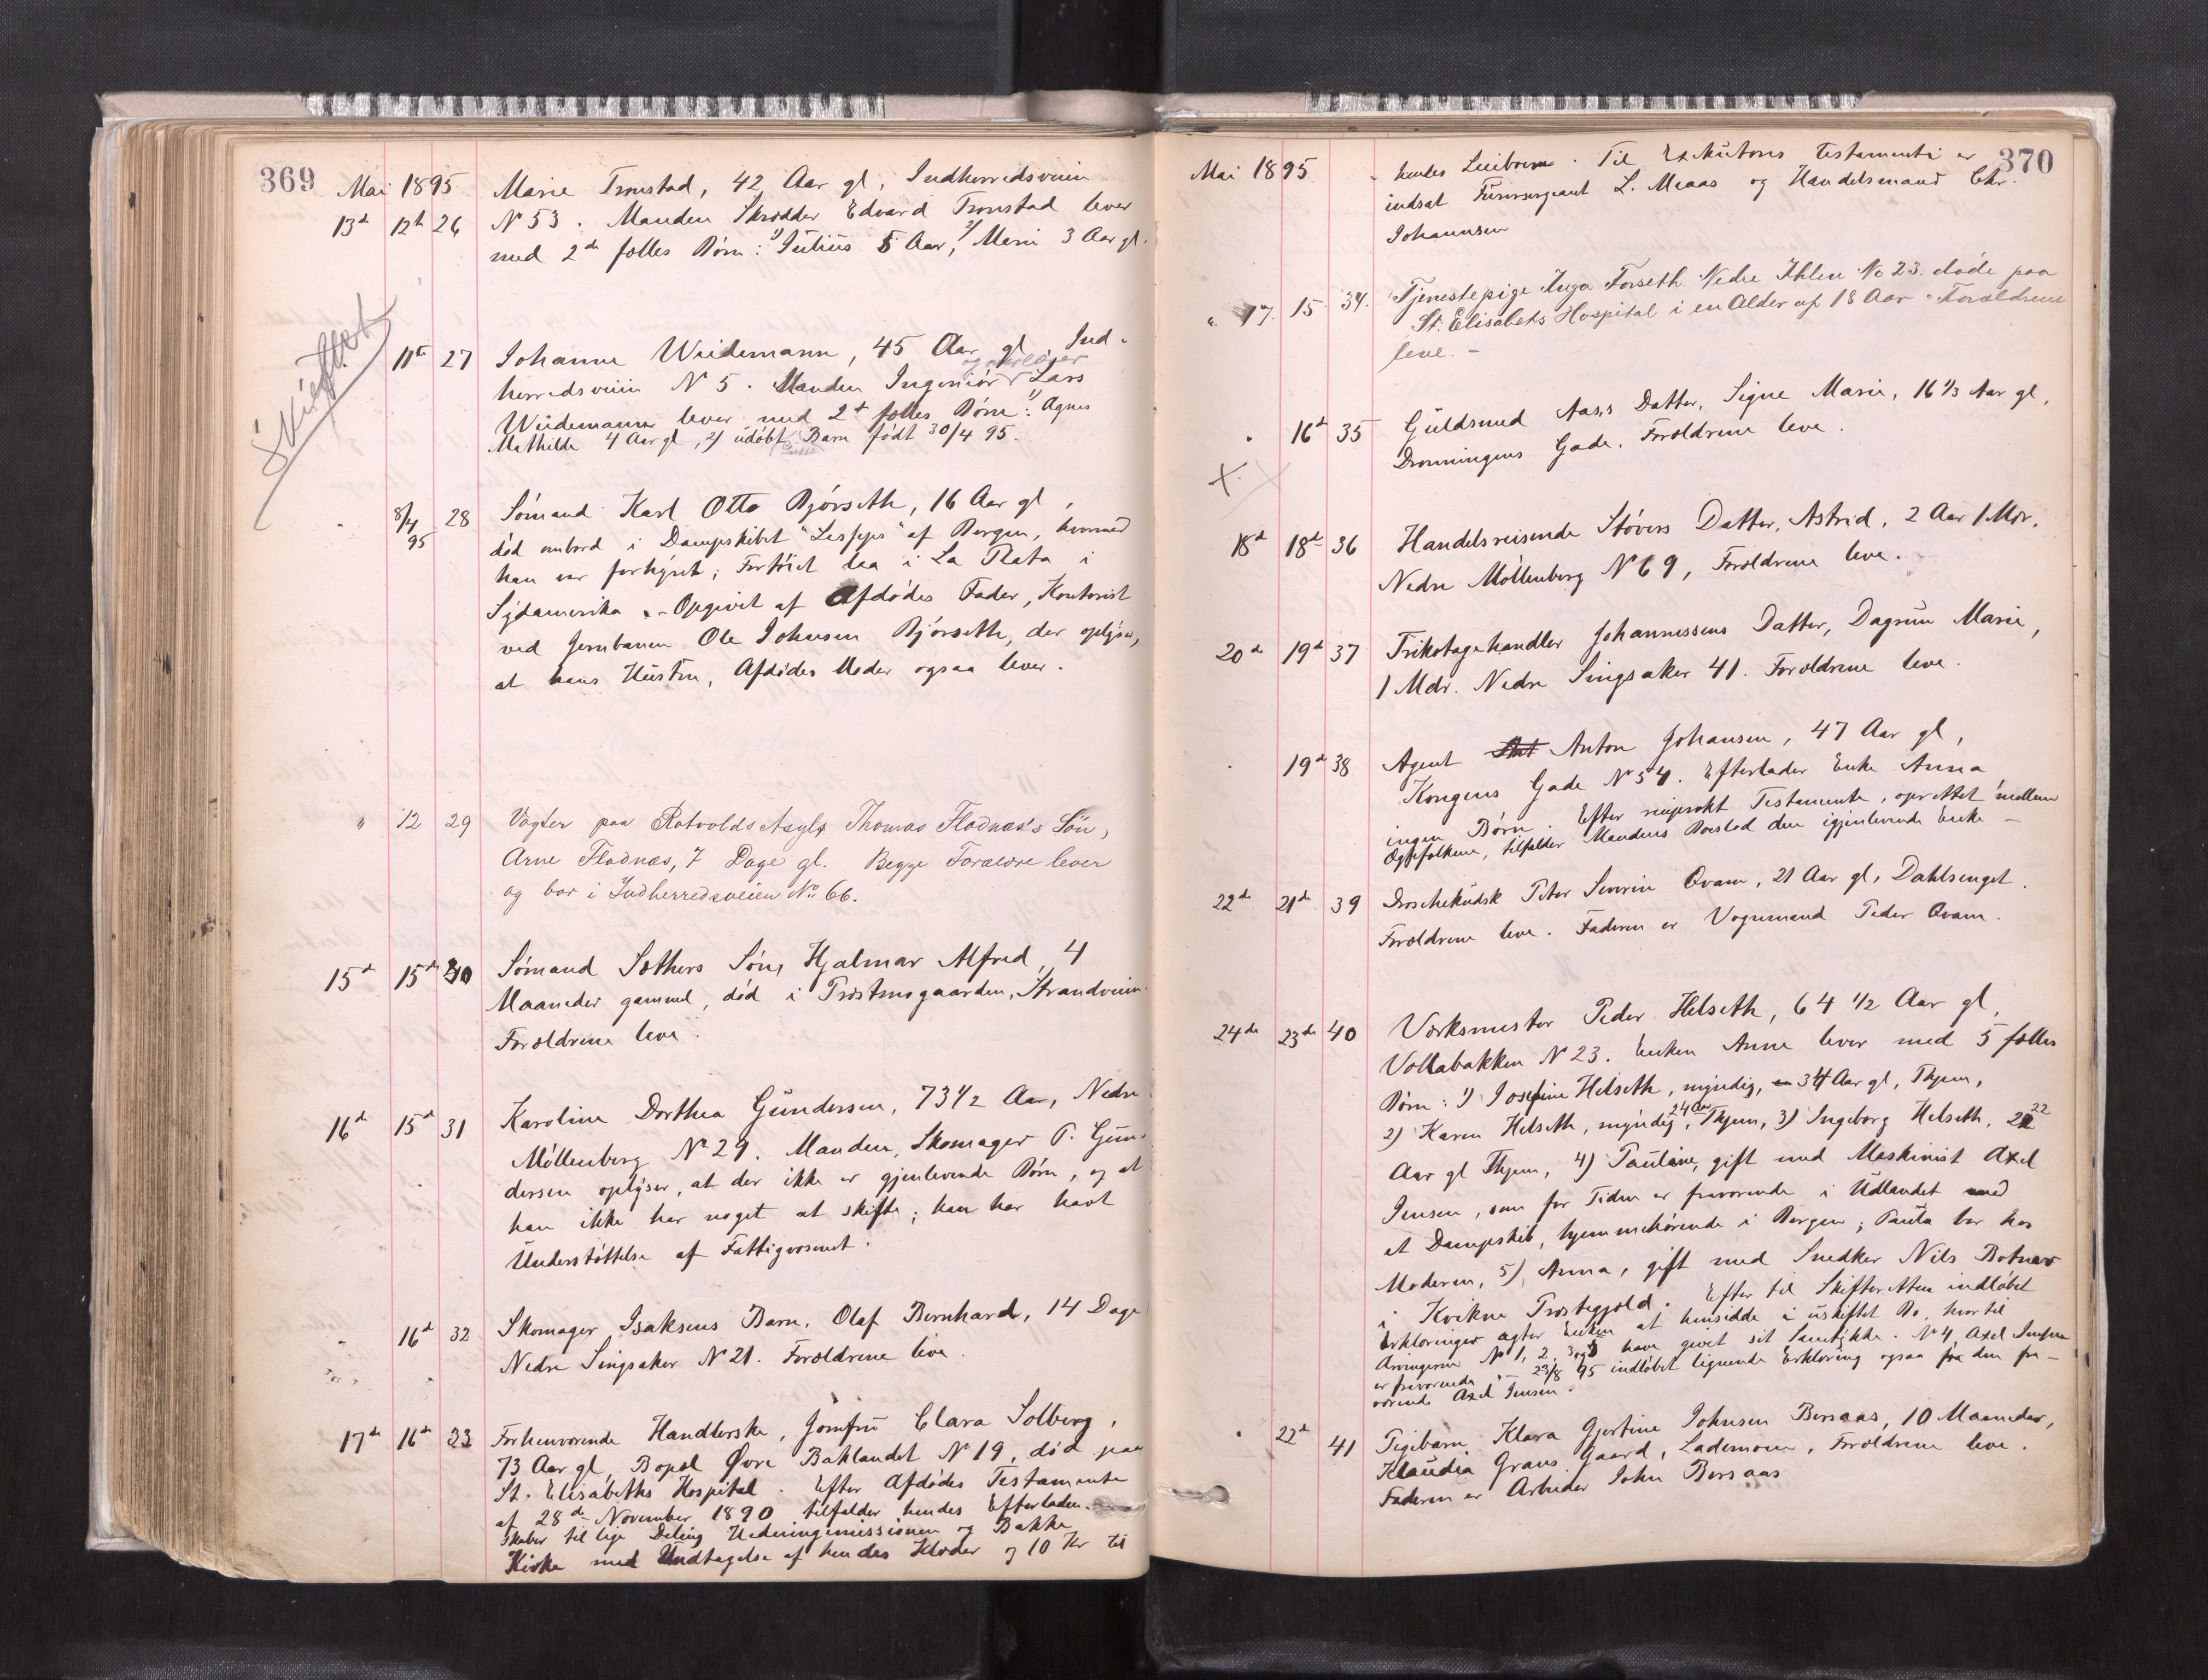 369
Mai 1895 Marie Tronstad, 42 Aar gl, Indherredsveien
13d 12t 26 N 53. Manden Skrædder Edvard Tronstad lever
med 2de fælles Børn: 1) Julius 5 Aar, 2) Marie 3 Aar gl.
Skiftet
11te 27 Johanne Wiidemann, 45 Aar gl, Ind-
herredsveien N 5. Manden Ingeniør Lars
Wiidemann lever med 2d fælles Børn: 1) Agnes
Mathilde 4 Aar gl, 2) udøbt Barn født 30/4 95.
8/4 95 28 Sømand Karl Otto Bjørseth, 16 Aar gl,
død ombord i Dampskibet "Lesseps" af Bergen, hvormed
han var forhyret; Fartøiet laa i La Plata i
Sydamerika. - Opgivet af Afdødes Fader, Kontorist
ved Jernbanen Ole Johnsen Bjørseth, der oplyser,
at hans Hustru, Afdødes Moder ogsaa lever.
" 12 29 Vogter paa Rotvolds Asyl Thomas Flodnæs's Søn,
Arne Flodnæs, 7 Dage gl. Begge Forældre lever
og bor i Indherredsveien No 66.
15d 15de 30 Sømand Sæthers Søn, Hjalmar Alfred, 4
Maaneder gammel, død i Presthusgaarden, Strandveien.
Forældrene leve.
16d 15d 31 Karoline Dorthea Gundersen, 73 1/2 Aar, Nedre
Møllenberg No 29. Manden, Skomager P. Gun-
dersen oplyser, at der ikke er gjenlevende Børn, og at
han ikke har noget at skifte; han har havt
Understøttelse af Fattigvæsenet.
" 16d 32 Skomager Isaksens Barn, Olaf Bernhard, 14 Dage
Nedre Singsaker N 21. Forældrene leve.
17de 16de 33 Forhenværende Handlerske, Jomfru Clara Solberg,
73 Aar gl, Bopæl Øvre Baklandet No 19, død paa
St. Elisabeths Hospital. Efter Afdødes Testamente
af 28de November 1890 tilfalder hendes Efterladen-
skaber til lige Deling Hedningemissionen og Bakke
Kirke med Undtagelse af hendes Klæder og 10 Kr til
370
Mai 1895 hendes Til Exekutores testamenti er
indsat L. Maas og Handelsmand Chr.
Johannsen
" 17. 15. 34. Tjenestepige Inga Forseth Nedre Ihlen No 23. døde paa
St. Elisabets Hospital i en Alder af 18 Aar. Forældrene
leve. -
" 16d 35 Guldsmed Aas's Datter, Signe Marie, 16 1/3 Aar gl,
X. Dronningens Gade. Forældrene leve.
18d 18d 36 Handelsreisende Støvers Datter, Astrid, 2 Aar 1 Mdr,
Nedre Møllenberg N 69, Forældrene leve.
20de 19d 37 Trikotagehandler Johannessens Datter, Dagrun Marie,
1 Mdr. Nedre Singsaker 41. Forældrene leve.
" 19d 38 Agent Anton Johansen, 47 Aar gl,
Kongens Gade N 54. Efterlader Enke Anna
ingen Børn. Efter Testamente, oprettet mellem
Ægtefolkene, tilfalder Mandens Boeslod den igjenlevende Enke -
22de 21de 39 Droschekudsk Peter Severin Qvam, 21 Aar gl, Dahlsenget.
Forældrene leve. Faderen er Vognmand Peder Qvam.
24de 23de 40 Værksmester Peder Helseth, 64 1/2 Aar gl,
Vollabakken N 23. Enken Anne lever med 5 fælles
Børn: 1) Josefine Helseth, myndig, 34 Aar gl, Thjem,
2) Karen Helseth, myndig, 24 Aar Thjem, 3) Ingeborg Helseth, 22
Aar gl Thjem, 4) Pauline, gift med Maskinist Axel
Jensen, som for Tiden er fraværende i Udlandet med
et Dampskib, hjemmehørende i Bergen; Paula bor hos
Moderen, 5), Anna, gift med Snedker Nils Botner
i Kvikne Præstegjeld. Efter til Skifteretten indløbet
Erklæringer agter Enken at hensidde i uskiftet Bo, hvortil
Arvingerne N 1, 2, 3 og 5 have givet sit Samtykke. N 4, Axel Jensen
er fraværende. - 23/8 95 indløbet lignende Erklæring ogsaa fra den fra-
værende Axel Jensen.
" 22d 41 Pigebarn Klara Gjertine Johnsen Bersaas, 10 Maaneder,
Klaudia Grans Gaard, Lademoen, Forældrene leve.
Faderen er Arbeider John Bersaas